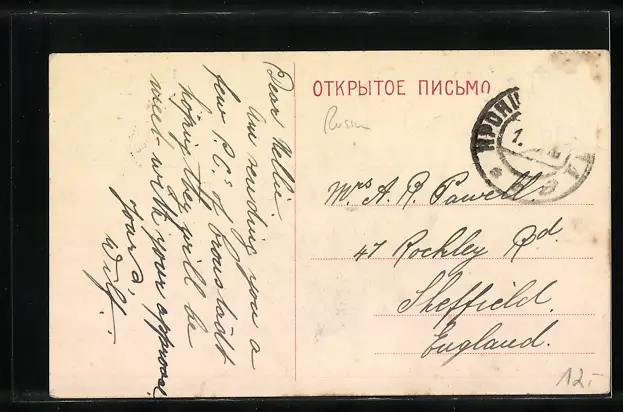 Dear Nellie.
Am sending you a
few P.C.s of Cronstadt
hoping they will be
meet with your approval
Yours,
Wilf.
ОТКРЫТОЕ ПИСЬМО
Russia
Mrs A. R. Powell.
47 Rockley Rd.
Sheffield.
England.
12.-